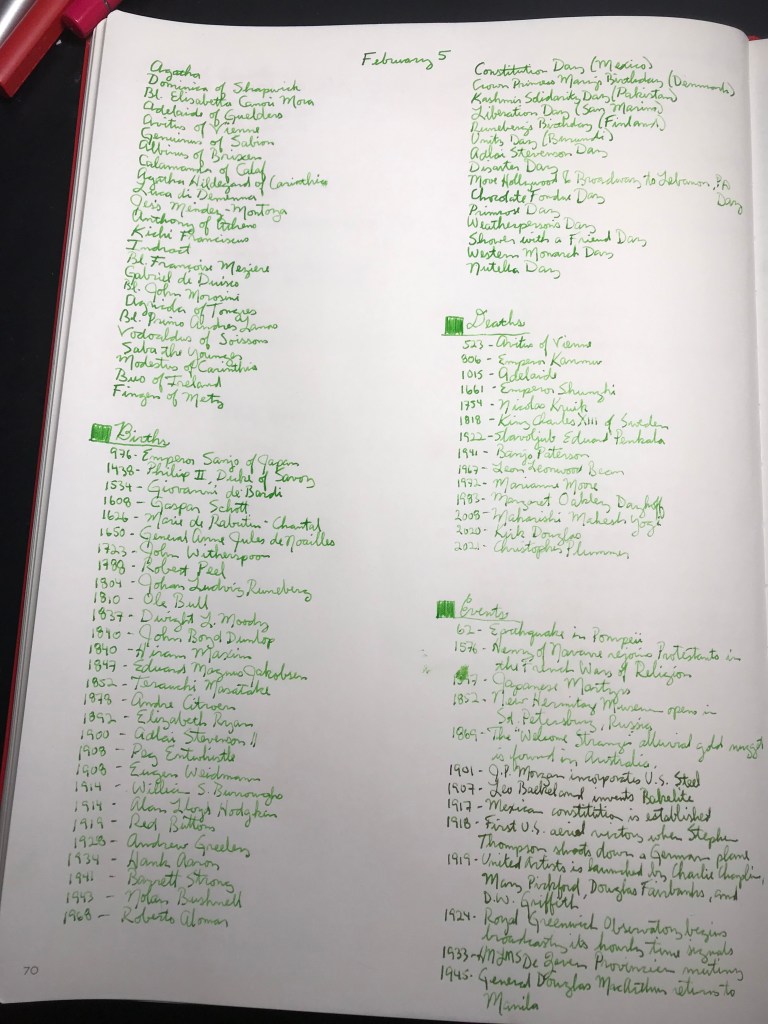 February 5
Agatha
Dominica of Shapwick
Bl. Elisabetta Canori Mora
Adelaide of Guelders
Avitus of Vienne
Genuinus of Sabion
Albinus of Brixen
Calamanda of Calaf
Agatha Hildegard of Carinthia
Luca di Demenna
Jesús Méndez-Montoya
Anthony of Athens
Kichi Franciscus
Indract
Bl. Françoise Mézière
Gabriel de Duisco
Bl. John Morosini
Agricola of Tongres
Bl. Primo Andrés Lanas
Vodoaldus of Soissons
Saba the Younger
Modestus of Carinthia
Buo of Ireland
Fingen of Metz
Births
976 - Emperor Sanjo of Japan
1438 - Philip II, Duke of Savoy
1534 - Giovanni de' Bardi
1608 - Gaspar Schott
1626 - Marie de Rabutin-Chantal
1650 - General Anne Jules de Noailles
1723 - John Witherspoon
1788 - Robert Peel
1804 - Johan Ludvig Runeberg
1810 - Ole Bull
1837 - Dwight L. Moody
1840 - John Boyd Dunlop
1840 - Hiram Maxim
1847 - Eduard Magnus Jakobson
1852 - Terauchi Masatake
1878 - Andre Citroen
1892 - Elizabeth Ryan
1900 - Adlai Stevenson II
1908 - Peg Entwistle
1908 - Eugen Weidmann
1914 - William S. Burroughs
1914 - Alan Lloyd Hodgkin
1919 - Red Buttons
1928 - Andrew Greeley
1934 - Hank Aaron
1941 - Barrett Strong
1943 - Nolan Bushnell
1968 - Roberto Alomar
70
Constitution Day (Mexico)
Crown Princess Mary's Birthday (Denmark)
Kashmir Solidarity Day (Pakistan)
Liberation Day (San Marino)
Runeberg's Birthday (Finland)
Unity Day (Burundi)
Adlai Stevenson Day
Disaster Day
Move Hollywood & Broadway to Lebanon, PA
Day
Chocolate Fondue Day
Primrose Day
Weatherperson's Day
Shower with a Friend Day
Western Monarch Day
Nutella Day
Deaths
523 - Avitus of Vienne
806 - Emperor Kanmu
1015 - Adelaide
1661 - Emperor Shunzhi
1754 - Nicolas Kruik
1818 - King Charles XIII of Sweden
1922 - Slavoljub Eduard Penkala
1941 - Banjo Paterson
1967 - Leon Leonwood Bean
1972 - Marianne Moore
1983 - Margaret Oakley Dayhoff
2008 - Maharishi Mahesh Yogi
2020 - Kirk Douglas
2021 - Christopher Plummer
Events
62 - Earthquake in Pompeii
1576 - Henry of Navarre rejoins Protestants in
the French Wars of Religion
1597 - Japanese Martyrs
1852 - New Hermitage Museum opens in
St. Petersburg, Russia
1869 - The "Welcome Stranger" alluvial gold nugget
is found in Australia.
1901 - J.P. Morgan incorporates U.S. Steel
1907 - Leo Baekeland invents Bakelite
1917 - Mexican constitution is established
1918 - First U.S. aerial victory when Stephen
Thompson shoots down a German plane
1919 - United Artists is launched by Charlie Chaplin,
Mary Pickford, Douglas Fairbanks, and
D.W. Griffith
1924 - Royal Greenwich Observatory begins
broadcasting its hourly time signals
1933 - HNLMS De Zeven Provinciën mutiny
1945 - General Douglas MacArthur returns to
Manila